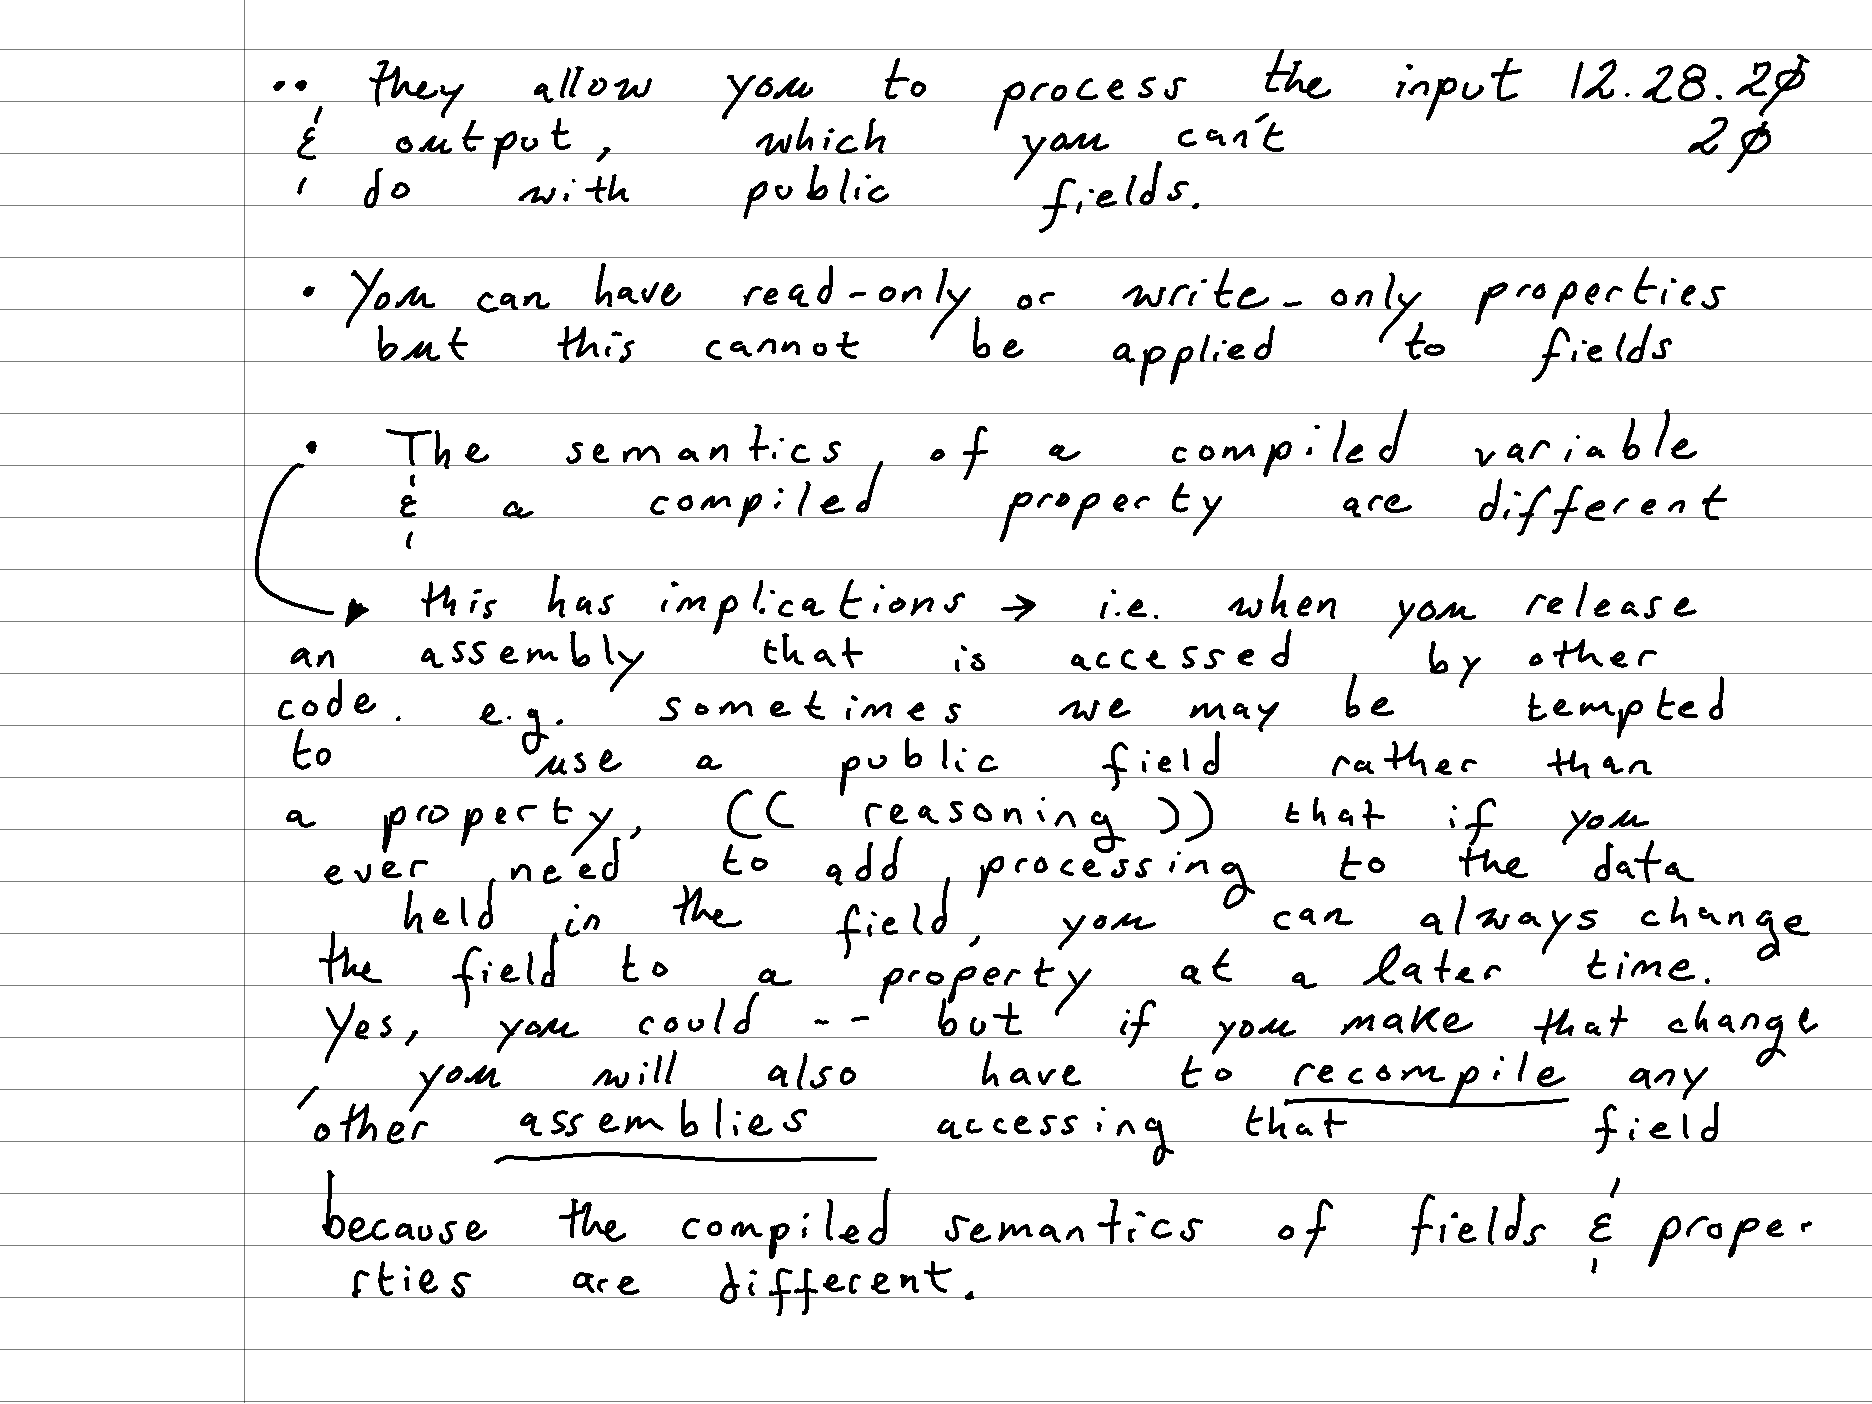 •• they allow you to process the input 12.28.20
& output, which you can't 20
do with public fields.
• You can have read-only or write-only properties
but this cannot be applied to fields
• The semantics of a compiled variable
& a compiled property are different
this has implications → i.e. when you release
an assembly that is accessed by other
code. e.g. sometimes we may be tempted
to use a public field rather than
a property, (( reasoning )) that if you
ever need to add processing to the data
held in the field, you can always change
the field to a property at a later time.
Yes, you could -- but if you make that change
, you will also have to recompile any
other assemblies accessing that field
because the compiled semantics of fields & prope-
rties are different.